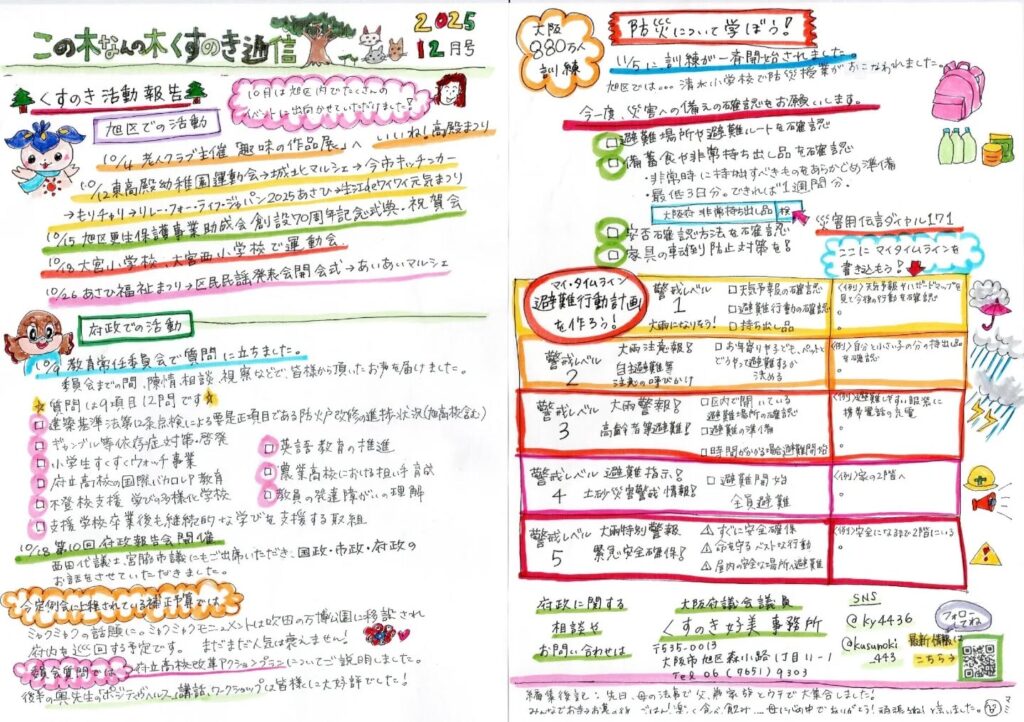 この木なんの木くすのき通信
2025
12月号
くすのき活動報告
10月は旭区内でたくさんの
イベントに出向かせていただきました!
旭区での活動
10/4 老人クラブ主催「趣味の作品展」へ いいね!高殿まつり
10/12 東高殿幼稚園運動会→城北マルシェ→今市キッチンカー
→もりチャリ→リレー・フォー・ライフ・ジャパン2025あさひ→生江deワイワイ元気まつり
10/15 旭区更生保護事業助成会 創設70周年記念式典・祝賀会
10/18 大宮小学校、大宮西小学校で運動会
10/26 あさひ福祉まつり→区民民謡発表会開会式→あいあいマルシェ
府政での活動
10/9 教育常任委員会で質問に立ちました。
委員会までの間、陳情、相談、視察などで、皆様から頂いたお声を届けました。
質問は9項目12問です
建築基準法第12条点検による要是正項目である防火戸改修の進捗状況(加高校含む)
ギャンブル等依存症対策・啓発
小学生すくすくウォッチ事業
府立高校の国際バカロレア教育
不登校支援 学びの多様化学校
支援学校卒業後も継続的な学びを支援する取組
英語教育の推進
農業高校における担い手育成
教員の発達障がいの理解
10/18 第10回 府政報告会開催
西田代議士、宮脇市議にもご出席いただき、国政・市政・府政の
お話をさせていただきました。
今定例会に上程されている補正予算では
ミャクミャクの話題に。ミャクミャクモニュメントは吹田の万博公園に移設され
府内を巡回する予定です。まだまだ人気は衰えません!
額会質問では 府立高校改革アクションプランについてご説明しました。
後半の奥先生のポジティヴヘルス講話、ワークショップは皆様に大好評でした!
大阪
880万人
訓練
防災について学ぼう!
11/5に訓練が一斉開始されました。
旭区では…清水小学校で防災授業がおこなわれました。
今一度、災害への備えの確認をお願いします。
避難場所や避難ルートを確認
備蓄食や非常持ち出し品を確認
・非常時に持ち出すべきものをあらかじめ準備
・最低3日分。できれば1週間分。
大阪府 非常持ち出し品 検
安否確認方法を確認
災害用伝言ダイヤル171
家具の転倒防止対策を!
ここにマイタイムラインを
書き込もう!
マイ・タイムライン
避難行動計画
を作ろう!
警戒レベル
1
大雨になりそう!
天気予報の確認
避難行動の確認
持ち出し品
〈例〉天気予報やハザードマップを
見て今後の行動を確認
警戒レベル
2
大雨注意報!
自主避難等
注意の呼びかけ
お年寄りや子ども、ペットと
どうやって避難するか
決める
〈例〉自分と小さい子の分の持出品
を確認
警戒レベル
3
大雨警報!
高齢者等避難!
区内で開いている
避難場所の確認
避難の準備
時間がかかる場合避難開始
〈例〉避難しやすい服装に
携帯電話の充電
警戒レベル
4
避難指示!
土砂災害警戒情報!
避難開始
全員避難
〈例〉家の2階へ
警戒レベル
5
大雨特別警報
緊急安全確保!
すぐに安全確保
命を守るベストな行動
屋内の安全な場所へ避難
〈例〉安全になるまで2階にいる
府政に関する
相談や
お問い合わせは
大阪府議会議員
くすのき好美 事務所
〒535-0013
大阪市旭区森小路1丁目11-1
Tel 06 (7651) 9303
SNS
@ky4436
@kusunoki
_443
フォロー
してね
最新情報は
こちら→
編集後記:先日、母の法事で父、弟家族とウチで大集合しました!